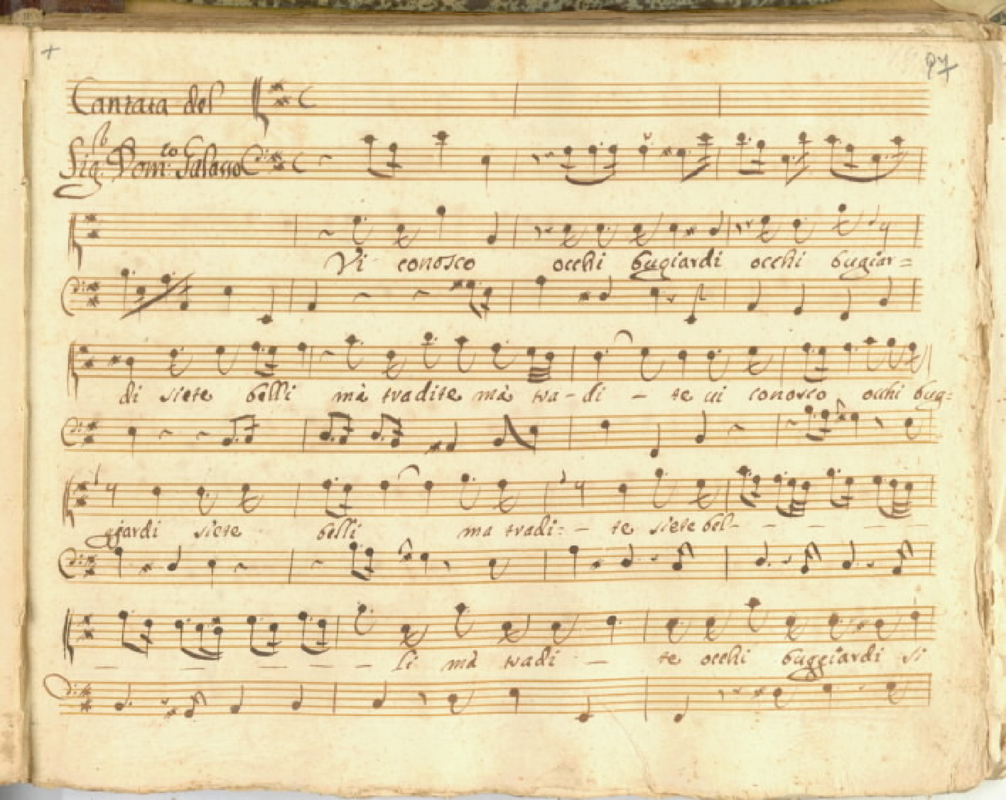 97
Cantata del
Sig.r Dom.co Galasso
Vi conosco occhi bugiardi occhi bugiar=
di siete belli mà tradite mà tra-di - te vi conosco occhi bug=
giardi siete belli ma tradi:- te siete bel- - - - -
- - - - - - li mà tradi - te occhi buggiardi si